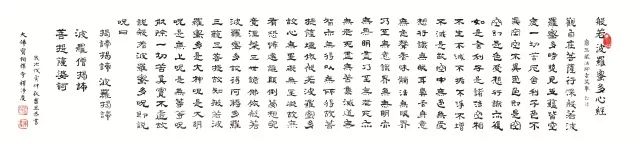 般若波羅蜜多心經
觀自在菩薩行深般若波
羅蜜多時照見五蘊皆空
度一切苦厄舍利子色不
異空空不異色色即是空
空即是色受想行識亦復
如是舍利子是諸法空相
不生不滅不垢不淨不增
不減是故空中無色無受
想行識無眼耳鼻舌身意
無色聲香味觸法無眼界
乃至無意識界無無明亦
無無明盡乃至無老死亦
無老死盡無苦集滅道無
智亦無得以無所得故菩
提薩埵依般若波羅蜜多
故心無罣礙無罣礙故無
有恐怖遠離顛倒夢想究
竟涅槃三世諸佛依般若
波羅蜜多故得阿耨多羅
三藐三菩提故知般若波
羅蜜多是大神呪是大明
呪是無上呪是無等等呪
能除一切苦真實不虛故
說般若波羅蜜多呪即說
呪曰
揭諦揭諦 波羅揭諦
波羅僧揭諦
菩提薩婆訶